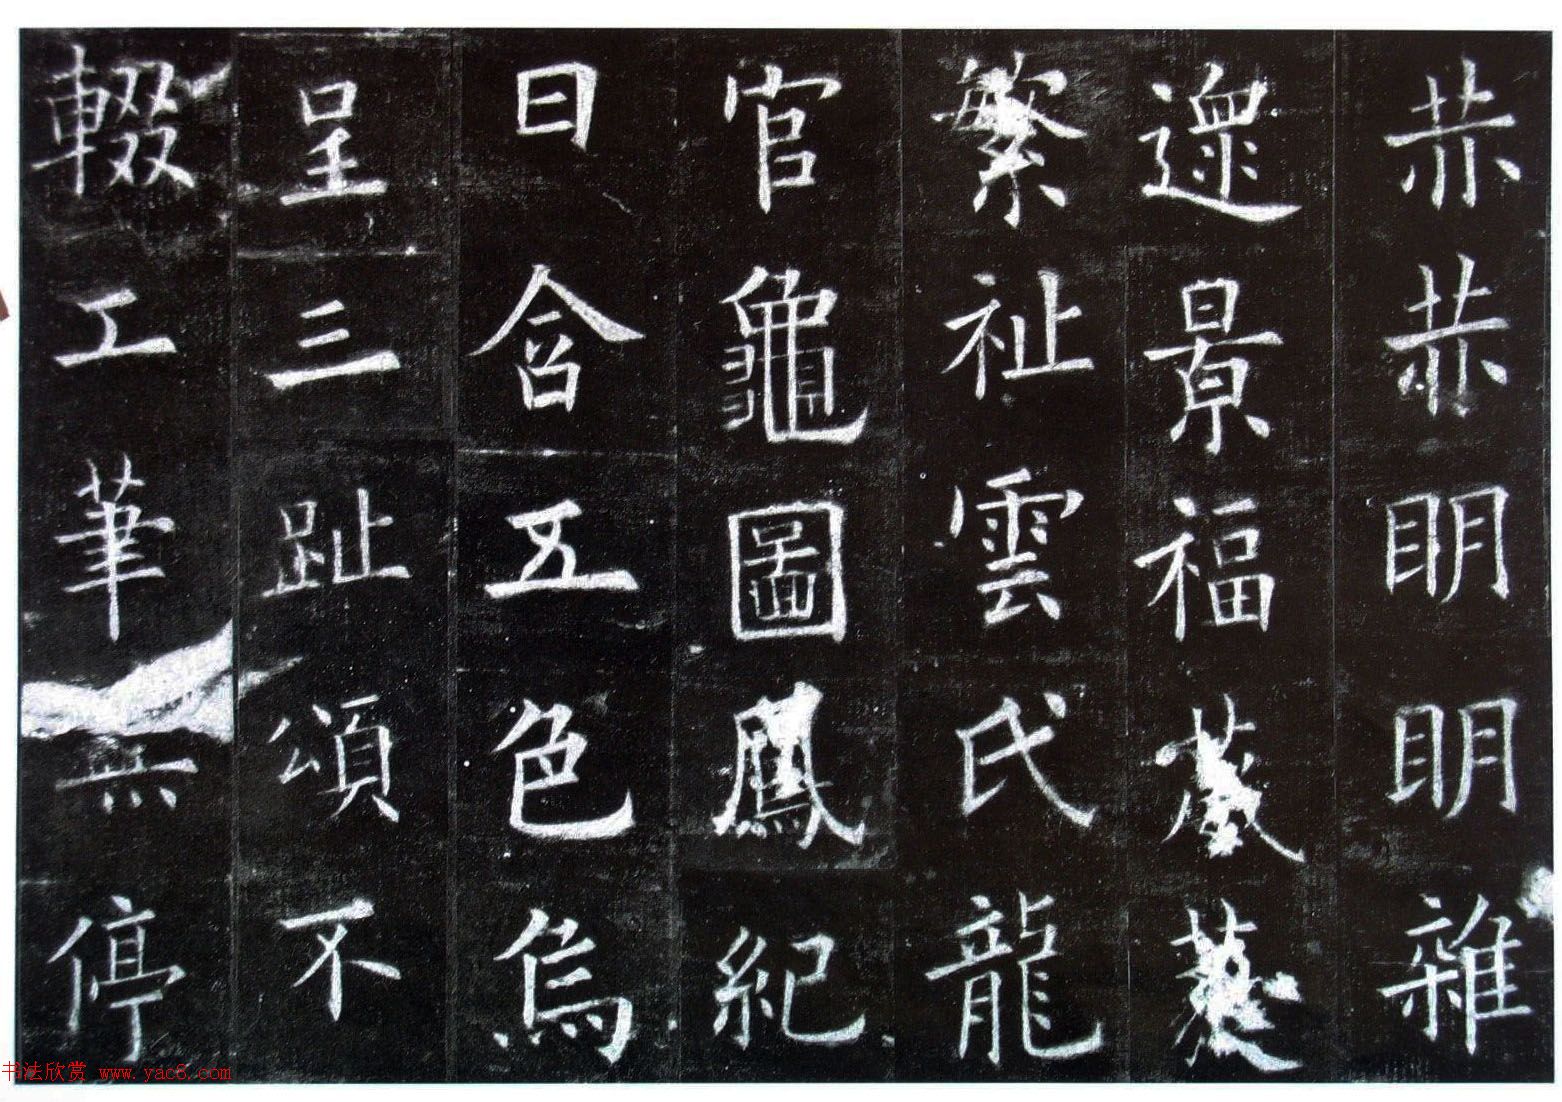 赫赫明明雜
遝景福葳蕤
繁祉雲氏龍
官龜圖鳳紀
日含五色烏
呈三趾頌不
輟工筆無停
书法欣赏 www.yac8.com